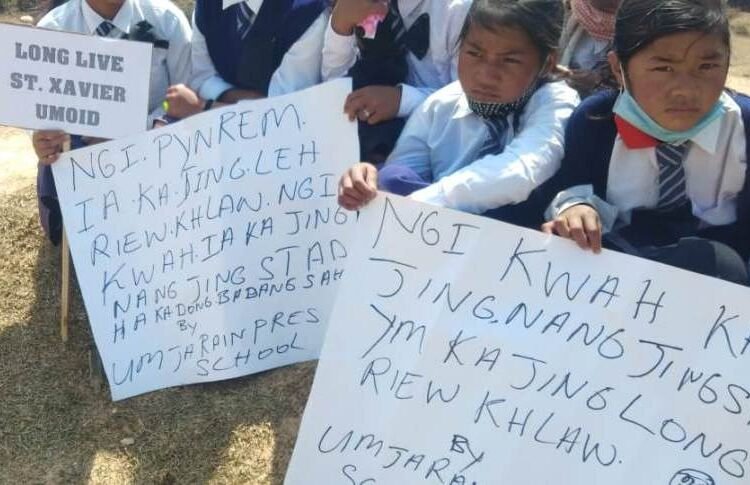 LONG LIVE
ST. XAVIER
UMOID
NGI. PYNREM.
IA. KA. JING. LEH
RIEW. KHLAW. NGI
KWAH. IA KA JING
NANG JING STAD
HA KA DONG BA DANG SAH
BY
UMJARAIN PRES
SCHOOL
NGI KWAH KA
JING, NANG JING S
YM KA JING LONG
RIEW KHLAW.
BY
UMJARAI
SC